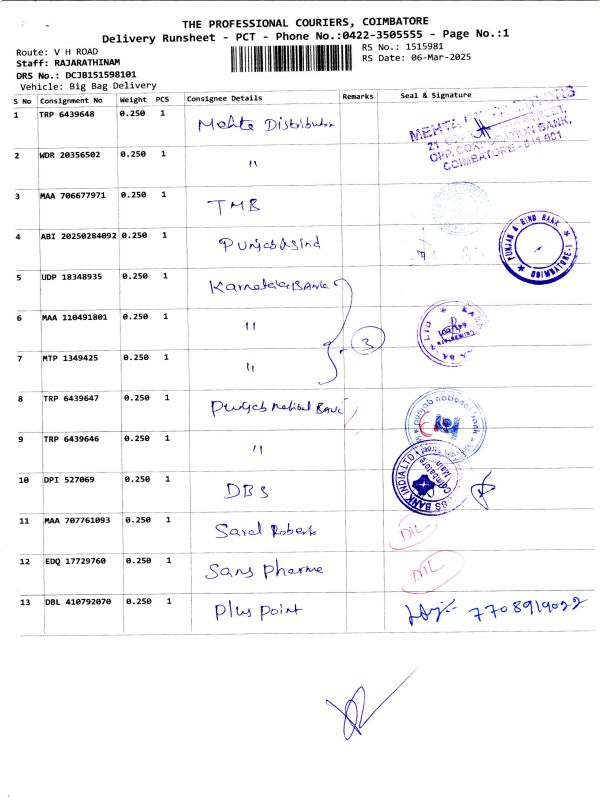 THE PROFESSIONAL COURIERS, COIMBATORE
Delivery Runsheet - PCT - Phone No.:0422-3505555 - Page No.:1
Route: V H ROAD
RS No.: 1515981
Staff: RAJARATHINAM
RS Date: 06-Mar-2025
DRS No.: DCJB151598101
Vehicle: Big Bag Delivery
S No Consignment No Weight PCS Consignee Details Remarks Seal & Signature
1 TRP 6439648 0.250 1 Mehta Distributor
MEHTA DISTRIBUTORS
21 STREET,
OPP. CORPORATION BANK,
COIMBATORE - 641 001
2 WDR 20356502 0.250 1 "
3 MAA 706677971 0.250 1 TMB
4 ABI 20250284092 0.250 1 Punjab & Sind
PUNJAB & SIND BANK
COIMBATORE-1
5 UDP 18348935 0.250 1 Karnataka BANK
6 MAA 110491801 0.250 1 "
3
7 MTP 1349425 0.250 1 "
8 TRP 6439647 0.250 1 Punjab National BANK
punjab national bank
9 TRP 6439646 0.250 1 "
10 DPI 527069 0.250 1 DBS
DBS BANK INDIA LTD
Coimbatore
Main
11 MAA 707761093 0.250 1 Sarel Roberts
DIL
12 EDQ 17729760 0.250 1 Sans Pharme
DIL
13 DBL 410792070 0.250 1 Plus point
7708919022